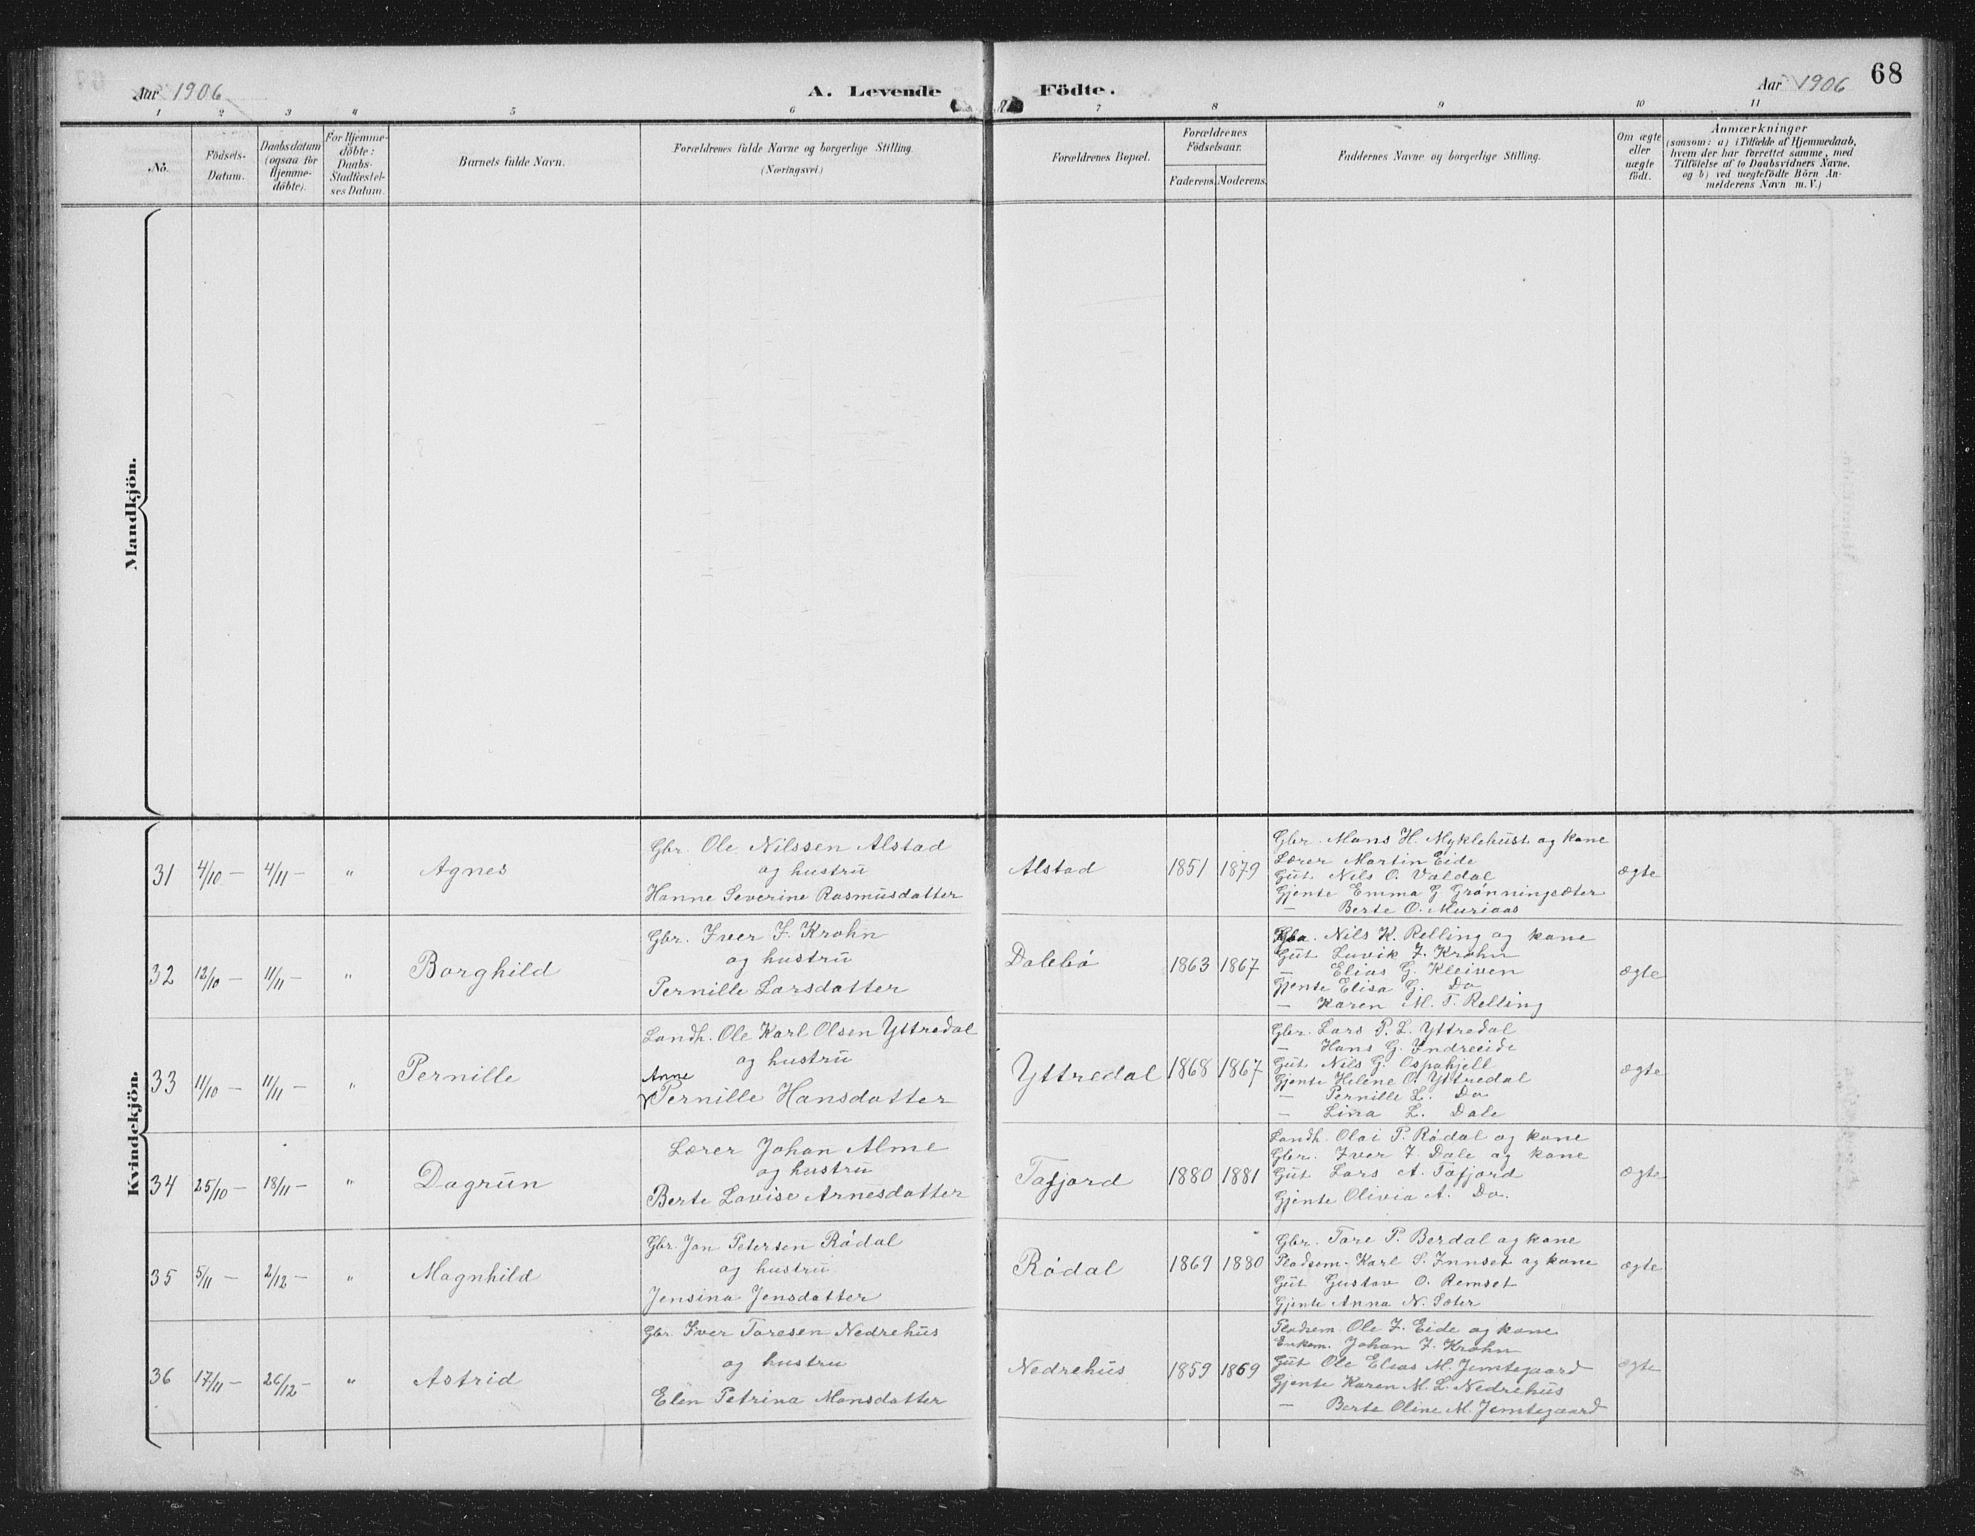 Aar 1906
A. Levende
Födte.
Aar 1906
68
1 2 3 4 5 6 7 8 9 10 11
No.
Födsels-
Datum.
Daabsdatum
(ogsaa for
Hjemme-
döbte).
For Hjemme-
döbte:
Daabs-
Stadfæstel-
ses Datum.
Barnets fulde Navn.
Forældrenes fulde Navne og borgerlige Stilling.
(Næringsvei.)
Forældrenes Bopæl.
Forældrenes
Födselsaar.
Faderens. Moderens.
Faddernes Navne og borgerlige Stilling.
Om ægte
eller
uægte
födt.
Anmærkninger
(saasom: a) i Tilfælde af Hjemmedaab,
hvem der har forrettet samme, med
Tilföielse af to Daabsvidners Navne,
og b) ved uægtefödte Börn An-
melderens Navn m. V.)
Mandkjön.
Kvindekjön.
31 4/10 — 4/11 — " Agnes
Gbr. Ole Nilssen Alstad
og hustru
Hanne Severine Rasmusdatter
Alstad 1851 1879
Gbr. Mans H. Myklehust og kone
Lærer Martin Eide
Gut Nils O. Valdal
Gjente Emma G Grønningsæter
— Berte O. Muriaas
ægte
32 12/10 — 11/11 — " Borghild
Gbr. Iver J. Krohn
og hustru
Pernille Larsdatter
Dalebø 1863 1867
Nils K. Relling og kone
Gut Luvik J. Krohn
— Elias G. Kleiven
Gjente Elisa G. Do
— Karen M. T. Relling
ægte
33 11/10 — 11/11 — " Pernille
Landh. Ole Karl Olsen Yttredal
og hustru
Anne
Pernille Hansdatter
Yttredal 1868 1867
Gbr. Lars P. L. Yttredal
— Hans G. Indreeide
Gut Nils G. Ospahjell
Gjente Helene O. Yttredal
— Pernille L. Do
— Lina L. Dale
ægte
34 25/10 — 18/11 — " Dagrun
Lærer Johan Alme
og hustru
Berte Lovise Arnesdatter
Tafjord 1880 1881
Landh. Olai P. Rødal og kone
Gbr. Iver J. Dale og kone
Gut Lars A. Tafjord
Gjente Olivia A. Do.
ægte
35 5/11 — 2/12 — " Magnhild
Gbr. Jon Petersen Rødal
og hustru
Jensina Jensdatter
Rødal 1869 1880
Gbr. Tore P. Berdal og kone
Pladsem. Karl S. Innset og kone
Gut Gustav O. Remset
Gjente Anna N. Sæter
ægte
36 17/11 — 26/12 — " Astrid
Gbr. Iver Toresen Nedrehus
og hustru
Elen Petrina Monsdatter
Nedrehus 1859 1869
Pladsem. Ole J. Eide og kone
Enkem. Johan J. Krohn
Gut Ole Elias M. Jemtegaard
Gjente Karen M. L. Nedrehus
— Berte Oline M. Jemtegaard
ægte